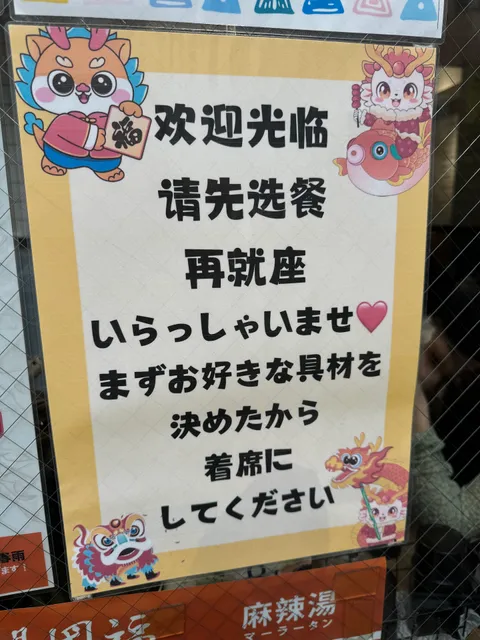 福
欢迎光临
请先选餐
再就座
いらっしゃいませ🩷
まずお好きな具材を
決めたから
着席に
してください
春雨
ます
麻辣湯
マーラータン